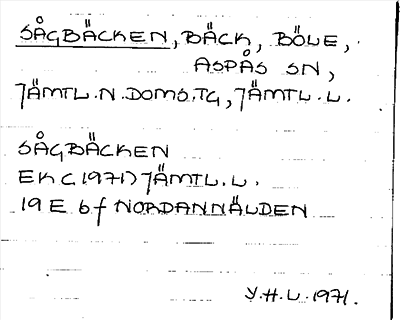 SÅGBÄCKEN, BÄCK, BÖLE,
ASPÅS SN,
JÄMTL.N.DOMS.TG, JÄMTL.L.
SÅGBÄCKEN
EK (1971) JÄMTL.L.
19 E 6 f NORDANNÄLDEN
Y.H.L. 1971.